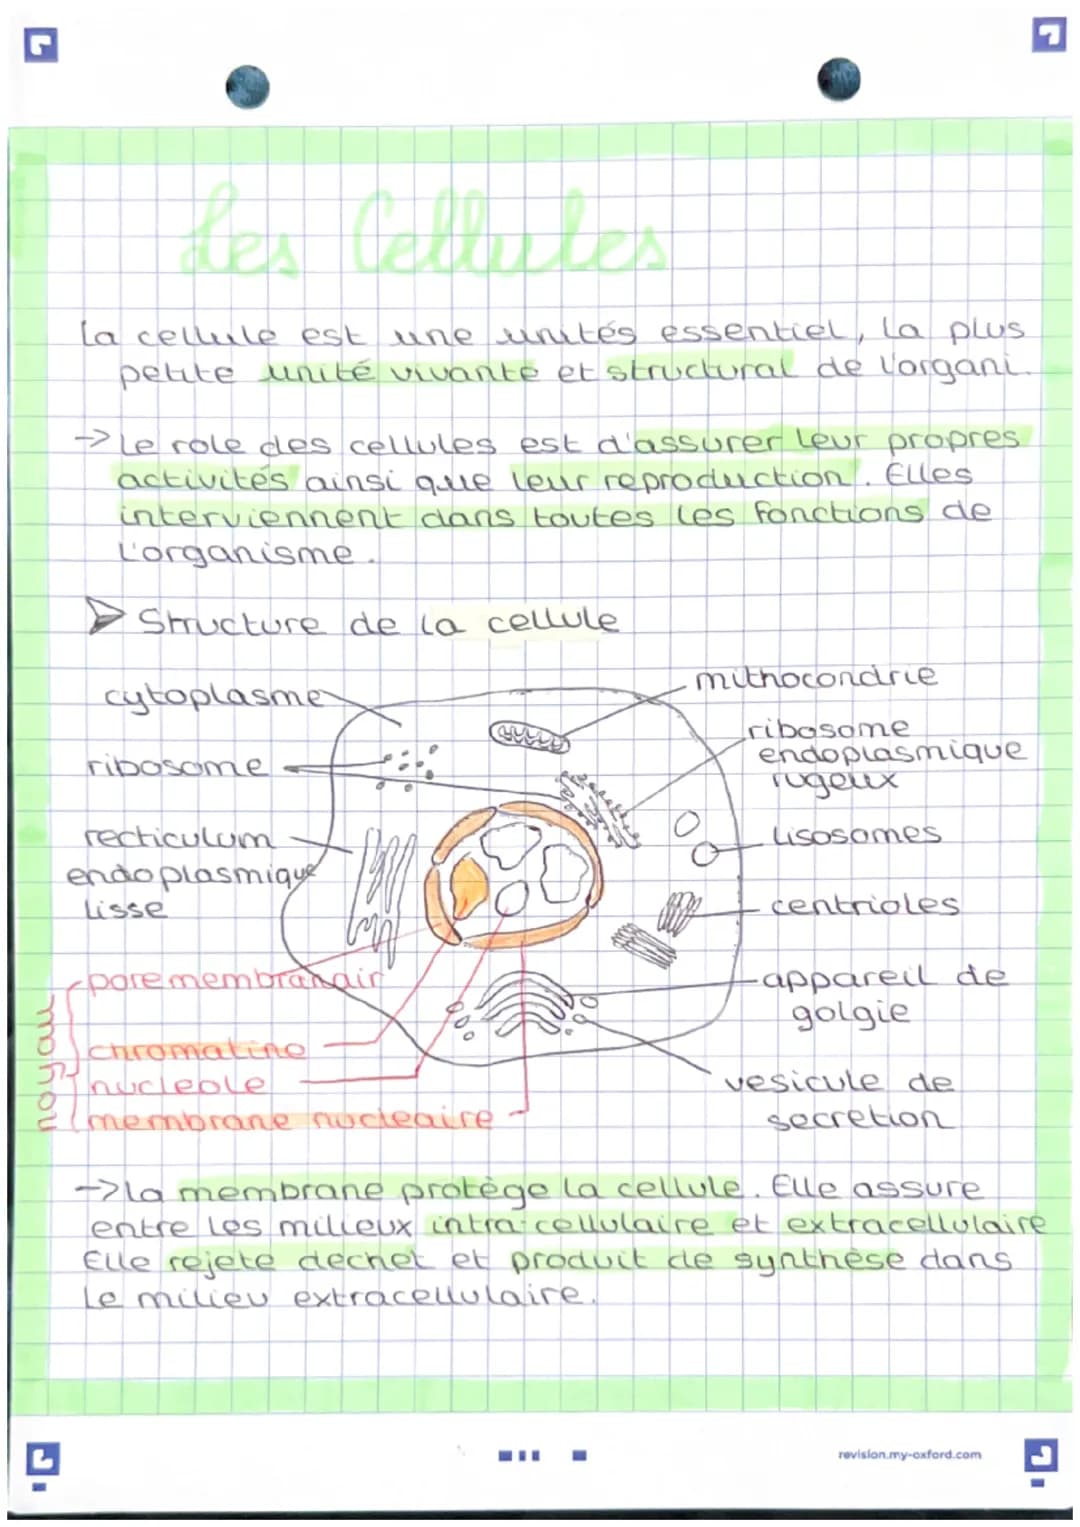 Les Cellules
la cellule est une unités essentiel, la plus
petite unité vivante et structural de l'organi.
-> Le role des cellules est d'assurer leur propres
activités ainsi que leur reproduction. Elles
interviennent dans toutes les fonctions de
L'organisme.
➤ Structure de la cellule
cytoplasme
mithocondrie
ribosome
ribosome
endoplasmique
rugeux
recticulum
endoplasmique
lisse
Lisosomes
centrioles
noyau
pore membranair
chromatine
nucleole
membrane nucleaire
appareil de
golgie
vesicule de
secretion
-> la membrane protège la cellule. Elle assure
entre les milieux intra-cellulaire et extracellulaire
Elle rejete dechet et produit de synthèse dans
Le milieu extracellulaire.
revision.my-oxford.com